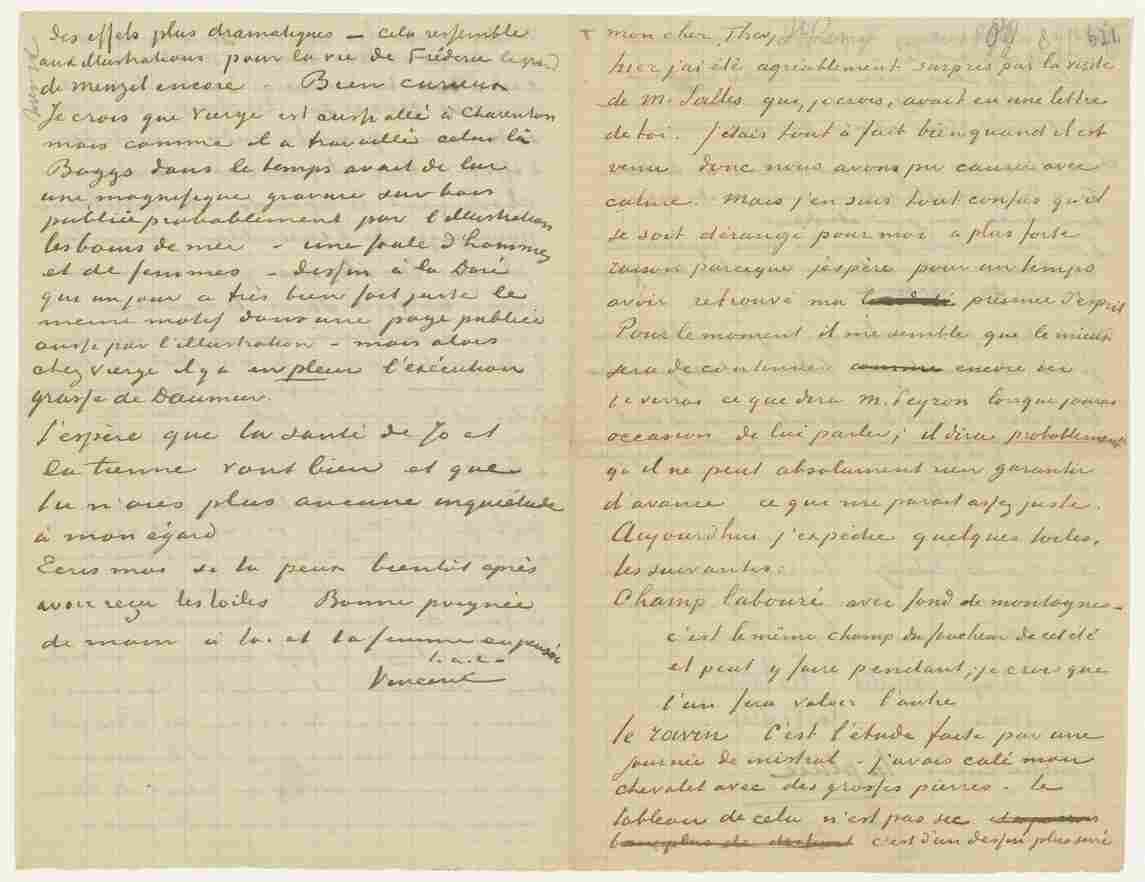 des effets plus dramatiques – cela ressemble
aux illustrations pour la vie de Frédéric le grand
de Menzel encore – Bien curieux
Je crois que Vierge est aussi allé à Charenton
mais comme il a travaillé celui là
Boggs dans le temps avait de lui
une magnifique gravure sur bois
publiée probablement par l'illustration
les bains de mer – une foule d'hommes
et de femmes – dessin à la Doré
qui un jour a très bien fait juste le
meme motif dans une page publiée
aussi par l'illustration – mais alors
chez Vierge il y a en plein l'exécution
grasse de Daumier.
J'espère que la santé de Jo et
la tienne vont bien et que
tu n'aies plus aucune inquiétude
à mon égard
Ecris moi si tu peux bientôt après
avoir reçu les toiles Bonne poignée
de main à toi et ta femme en pensée
t. à t.
Vincent
mon cher Theo,
621
hier j'ai été agréablement surpris par la visite
de M. Salles qui, je crois, avait eu une lettre
de toi. J'étais tout à fait bien quand il est
venu donc nous avons pu causer avec
calme. Mais j'en suis tout confus qu'il
se soit dérangé pour moi a plus forte
raison parceque j'espère pour un temps
avoir retrouvé ma présence d'esprit
Pour le moment il me semble que le mieux
sera de continuer comme encore ici
tu verras ce que dira M. Peyron lorsque j'aurai
occasion de lui parler; il dira probablement
qu'il ne peut absolument rien garantir
d'avance ce qui me parait assez juste.
Aujourd'hui j'expédie quelques toiles,
les suivantes:
Champ labouré avec fond de montagnes –
c'est le même champ du faucheur de cet été
et peut y faire pendant; je crois que
l'un fera valoir l'autre
le ravin C'est l'étude faite par une
journée de mistral – j'avais calé mon
chevalet avec des grosses pierres – le
tableau de cela n'est pas sec
c'est d'un dessin plus serré